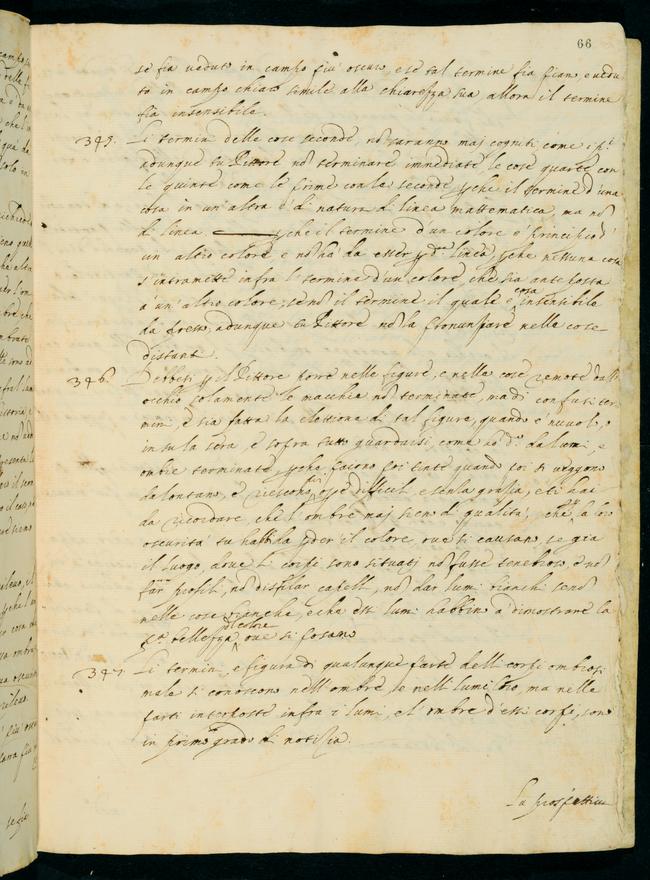 66
se sia veduto in campo piu' oscuro, e se tal termine sia piano, e vedu
to in campo chiaro simile alla chiarezza sua allora il termine
sia insensibile.
345. Li termini delle cose seconde no' saranno maj cogniti come i p.i
adunque tu Pittore no' terminare immediate le cose quarte con
le quinte come le prime con le seconde, p che il termine d'una
cosa in un'altra e' di natura di linea mattematica, ma no'
di linea. p che il termine d'un colore e' principio d'
un altro colore e no' ha' da esser p linea, p che nessuna cosa
s'intramette infra l' termine d'un colore, che sia anteposta
a' un' altro colore, se no' il termine il quale e' cosa insensibile
da presso, adunque tu Pittore no' la pronunziare nelle cose
distant.
346. Debbesi p il Pittore porre nelle figure, e nelle cose remote dall'
occhio solamente le macchie no' terminate, ma di confusi ter
mini, e sia fatta la elettione di tal figure, quando e' nuvolo, o
in su la sera, e sopra tutto guardisi, come ho d.o da lumi, e
ombre terminate p che pajono poi tinte quando poi si veggono
da lontano, e riescono poi opere difficil e senza grazia, e ti hai
da ricordare, che l'ombre maj sieno di qualita', che p la loro
oscurita' tu habbi a pder il colore, ove si causano, se gia
il luogo, dove li corpi sono situatj no' fusse tenebroso, e no'
far profili, no' disfilar capelli, no' dar lumi bianchi se no'
nelle cose bianche, e che essi lumi habbino a dimostrare la
p.a bellezza del colore, ove si posano
347. Li termini, e figura di qualunque parte delli corpi ombrosi
male si conoscono nell'ombre, e nelli lumi loro, ma nelle
parti interposte infra i lumi, e l'ombre d'essi corpi, sono
in primo grado di notizia.
La prospettiva